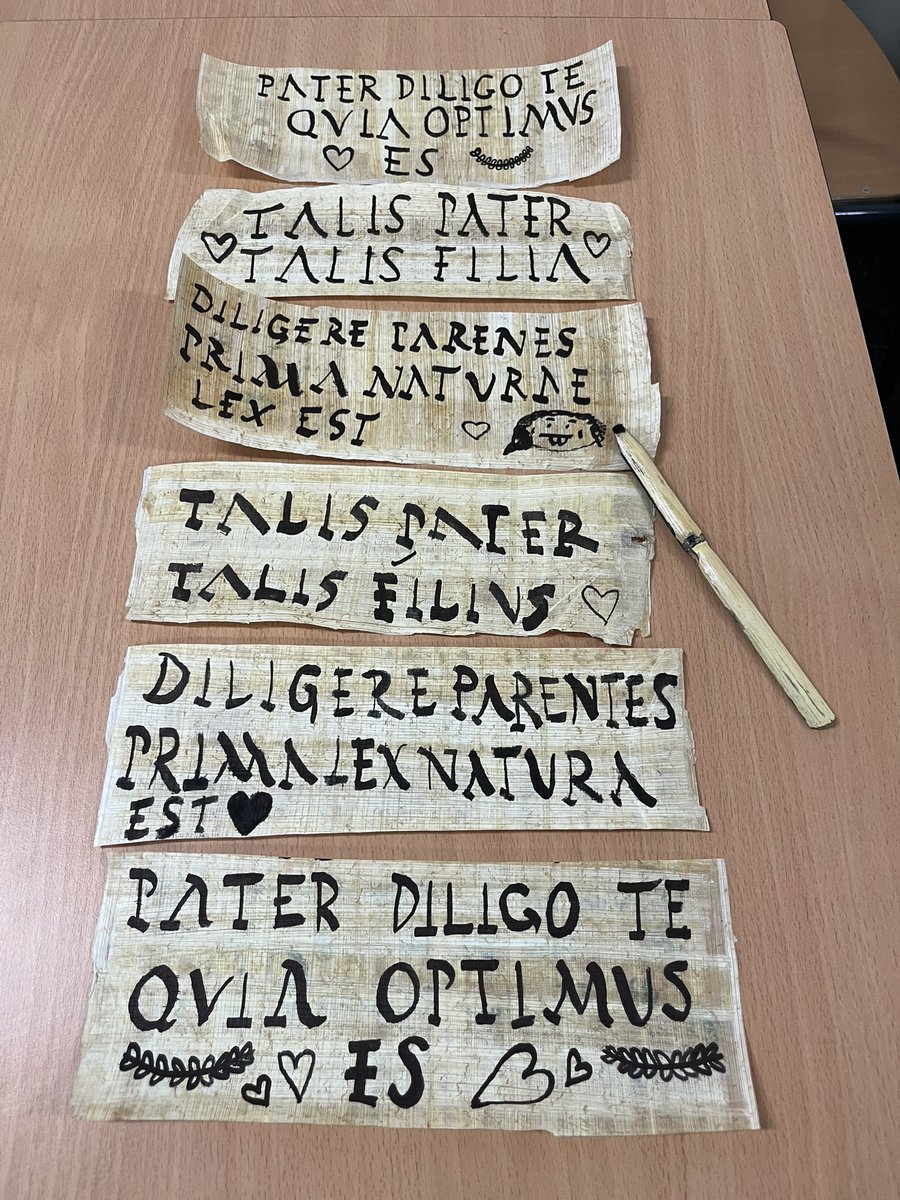 PATER DILIGO TE
QVIA OPTIMVS
ES
TALIS PATER
TALIS FILIA
DILIGERE PARENES
PRIMA NATURAE
LEX EST
TALIS PATER
TALIS FILIVS
DILIGERE PARENTES
PRIMA LEX NATURA
EST
PATER DILIGO TE
QVIA OPTIMUS
ES